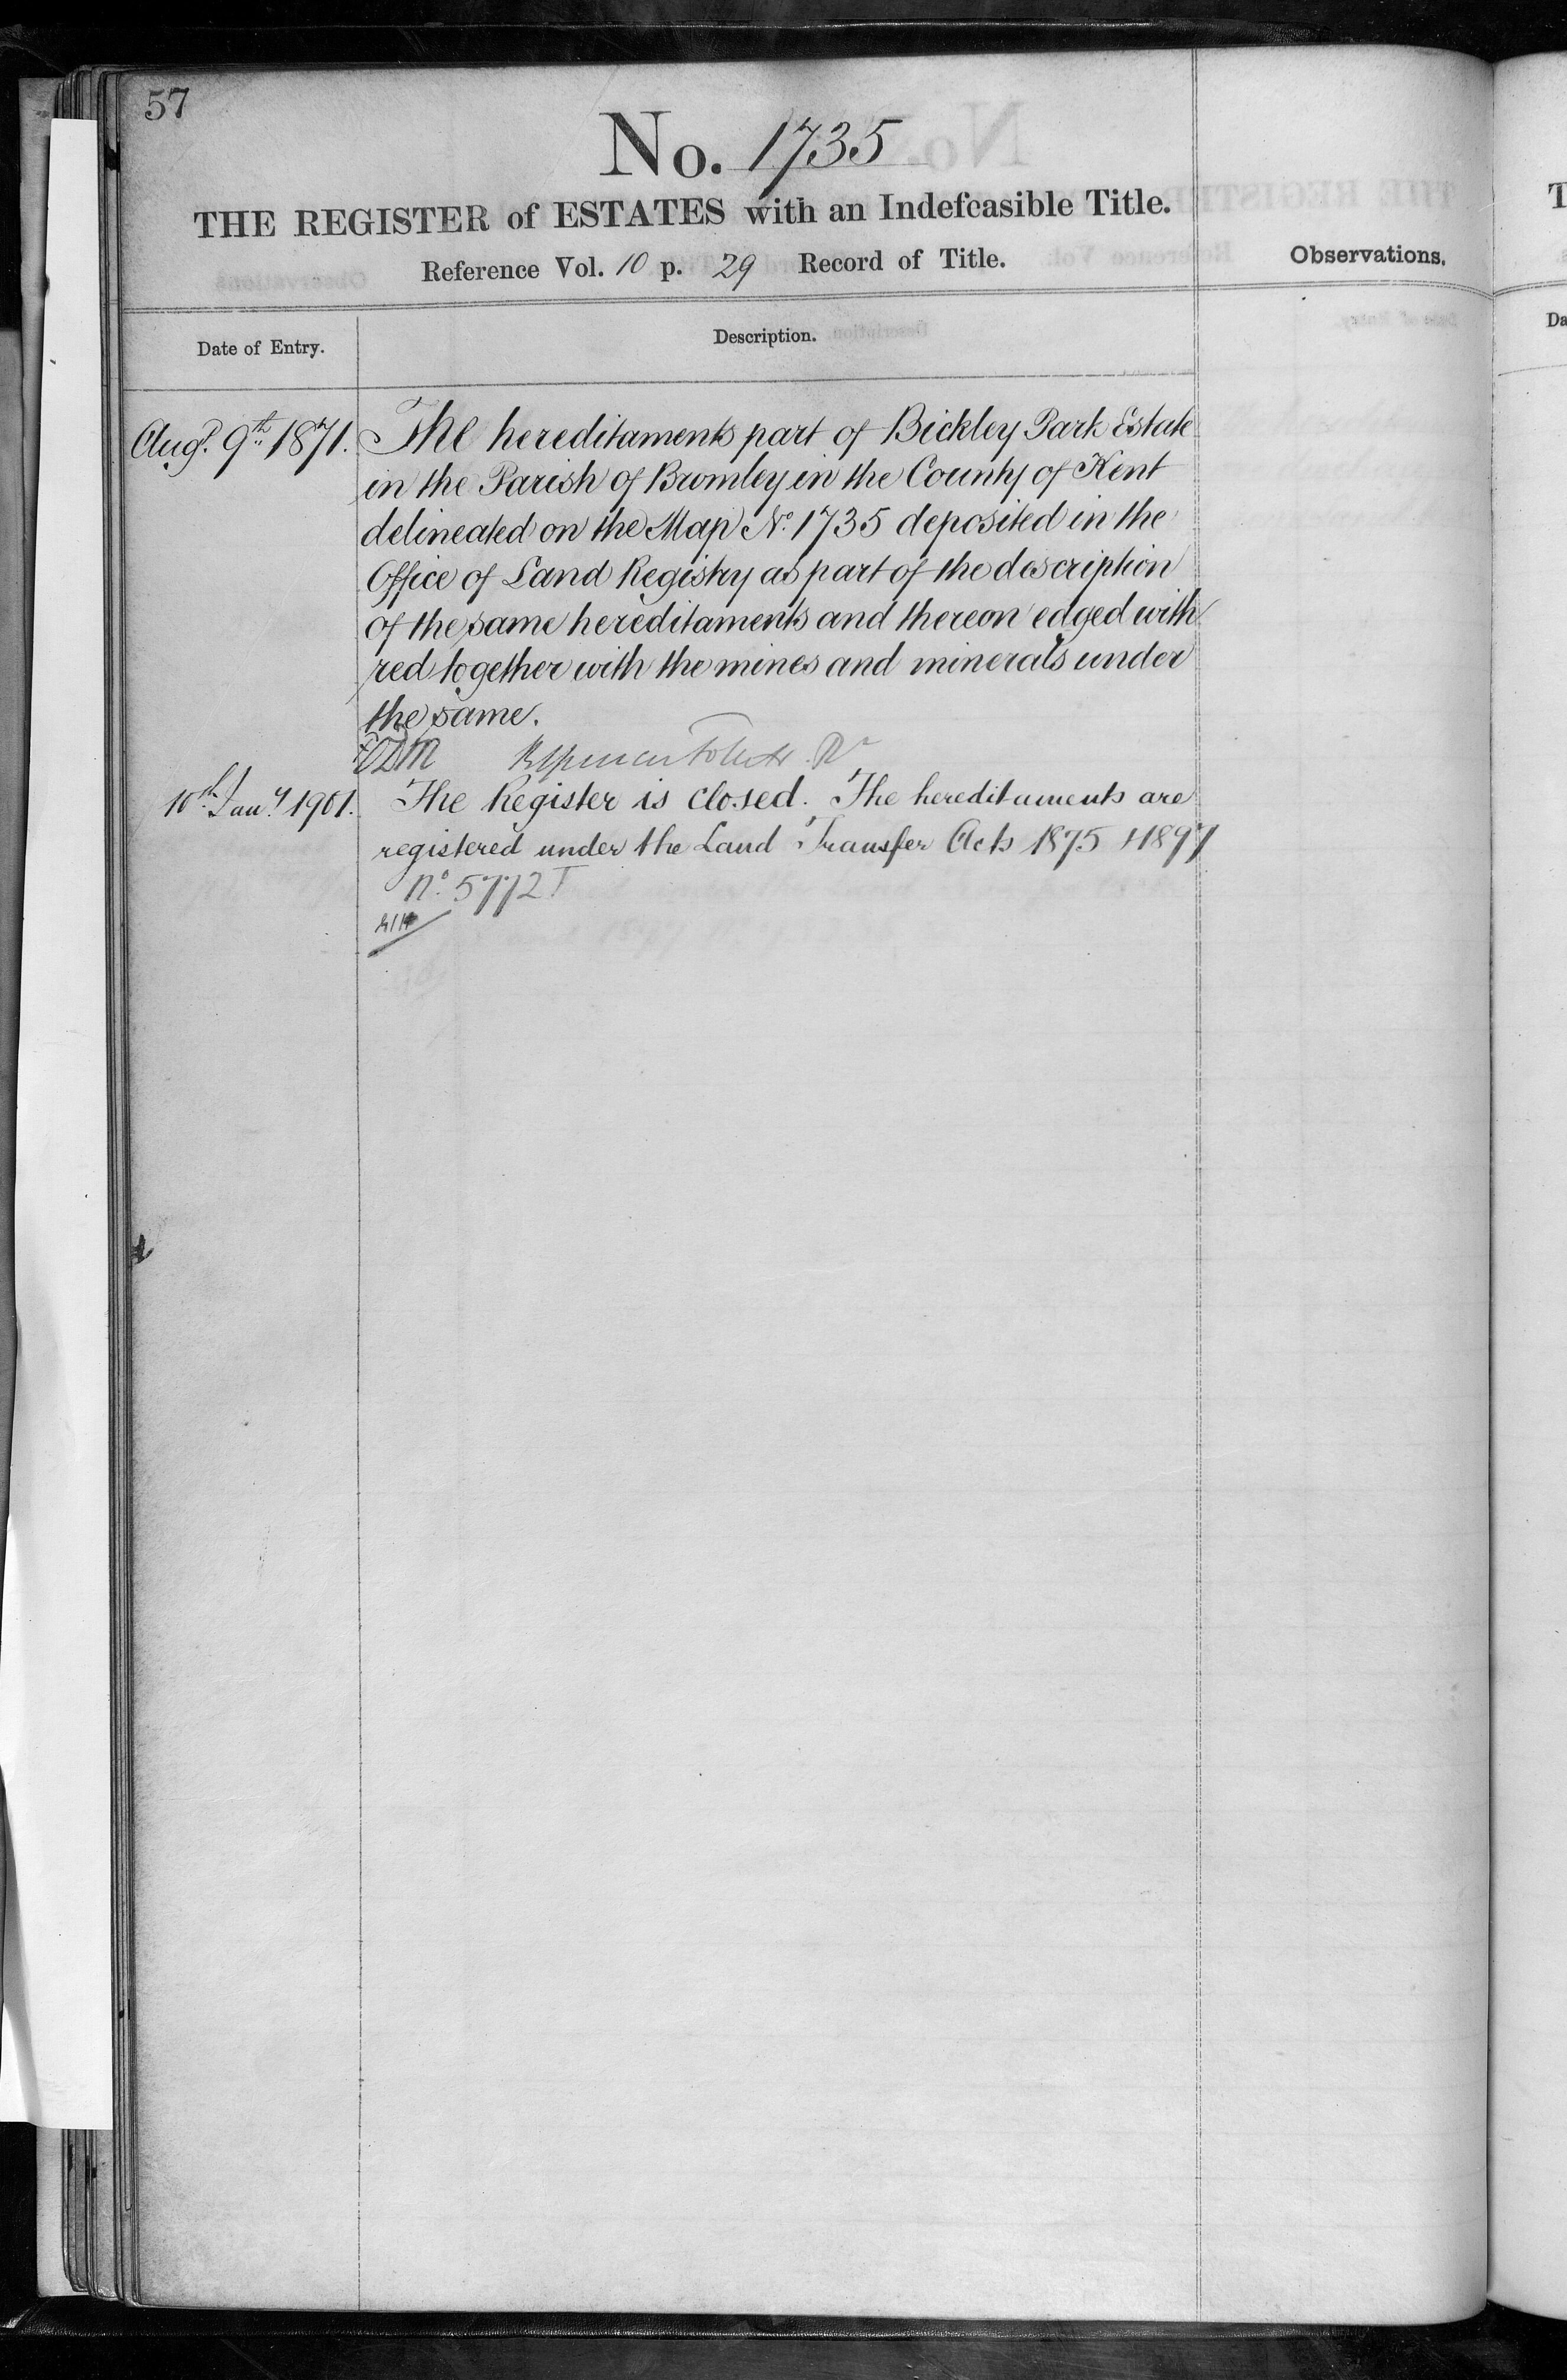 57
No. 1735
THE REGISTER of ESTATES with an Indefeasible Title.
Reference Vol. 10 p. 29 Record of Title.
Observations.
Date of Entry.
Description.
Augt. 9th 1871. The hereditaments part of Bickley Park Estate
in the Parish of Bromley in the County of Kent
delineated on the Map No. 1735 deposited in the
Office of Land Registry as part of the description
of the same hereditaments and thereon edged with
red together with the mines and minerals under
the same.
10th Jany 1901. The Register is closed. The hereditaments are
registered under the Land Transfer Acts 1875 & 1897
No. 5772